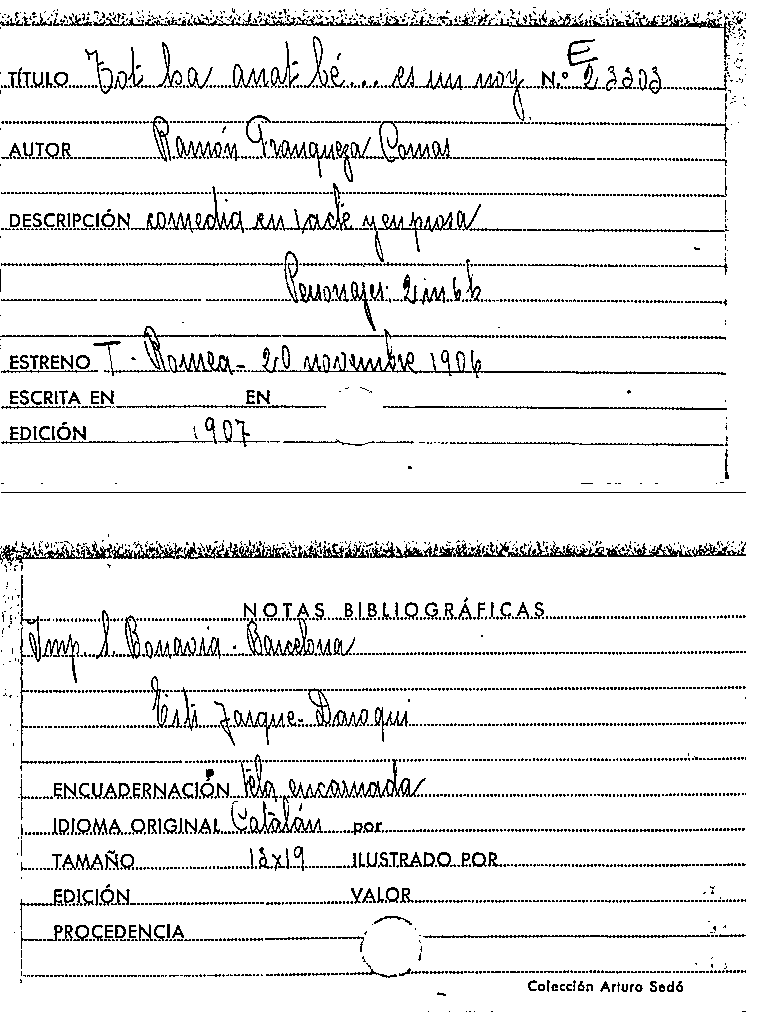 TÍTULO Tot ha anat bé... es un noy N.º E 23303
AUTOR Ramón Franqueza Comas
DESCRIPCIÓN comedia en 1 acte y en prosa
Personajes: 2 m 6 h
ESTRENO T. Romea - 20 novembre 1906
ESCRITA EN EN
EDICIÓN 1907
NOTAS BIBLIOGRÁFICAS
Imp. S. Bonavia - Barcelona
Jarque-Daroqui
ENCUADERNACIÓN tela encarnada
IDIOMA ORIGINAL Catalán por
TAMAÑO 12x19 ILUSTRADO POR
EDICIÓN VALOR
PROCEDENCIA
Colección Arturo Sedó